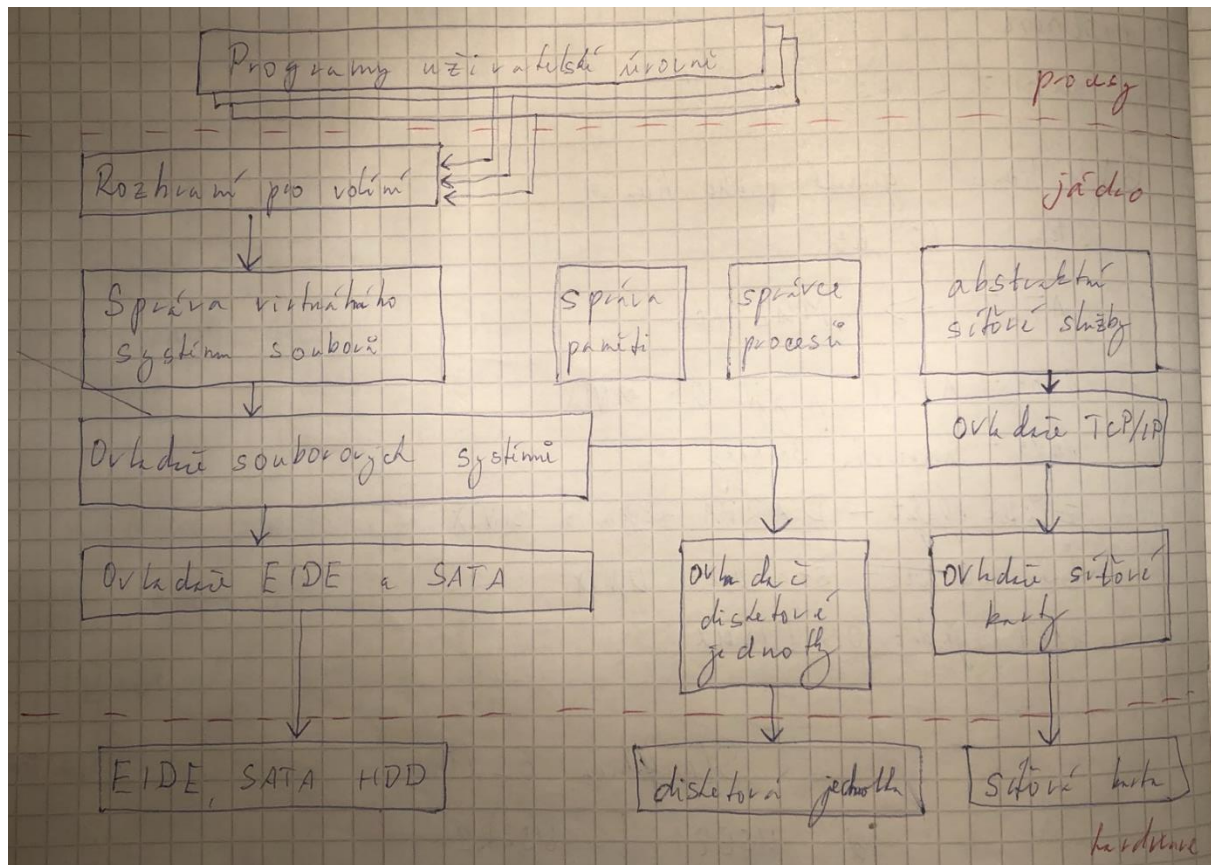 Programy uživatelské úrovni
procesy
Rozhraní pro volání
jádro
Správa virtuálního
systému souborů
správa
paměti
správce
procesů
abstraktní
síťové služby
Ovladače souborových systémů
Ovladače TCP/IP
Ovladače EIDE a SATA
Ovladač
disketové
jednotky
Ovladače síťové
karty
EIDE, SATA HDD
disketová jednotka
Síťová karta
hardware